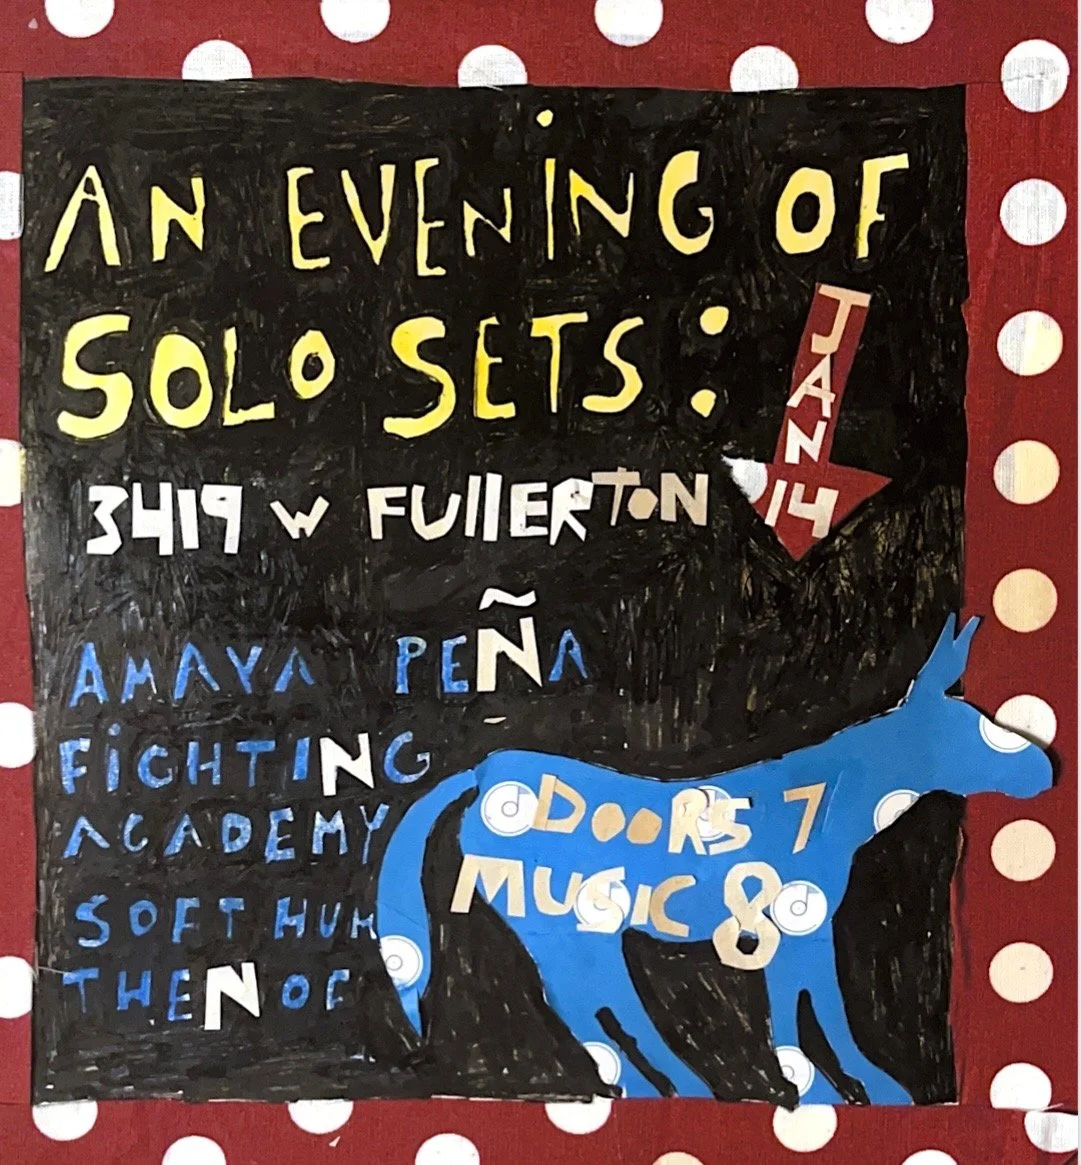 AN EVENING OF
SOLO SETS:
JAN
14
3419 W FULLERTON
AMAYA PEÑA
FIGHTING
ACADEMY
SOFT HUM
THEN OF
DOORS 7
MUSIC 8